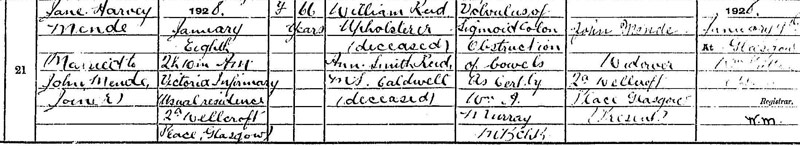 21
Jane Harvey
Mende
Married to
John Mende,
Joiner)
1928.
January
Eighth
2h 10m AM
Victoria Infirmary
(Usual residence
2a Wellcroft
Place, Glasgow)
F
66
Years
William Reid,
Upholsterer
(deceased)
Ann Smith Reid,
M.S. Caldwell
(deceased)
Volvulus of
Sigmoid Colon
Obstruction
of bowels
As Cert. by
Wm A.
Murray
M.B. Ch.B.
John Mende
Widower
2a Wellcroft
Place Glasgow
(Present)
1928.
January 9th
At Glasgow
Registrar.
W.M.